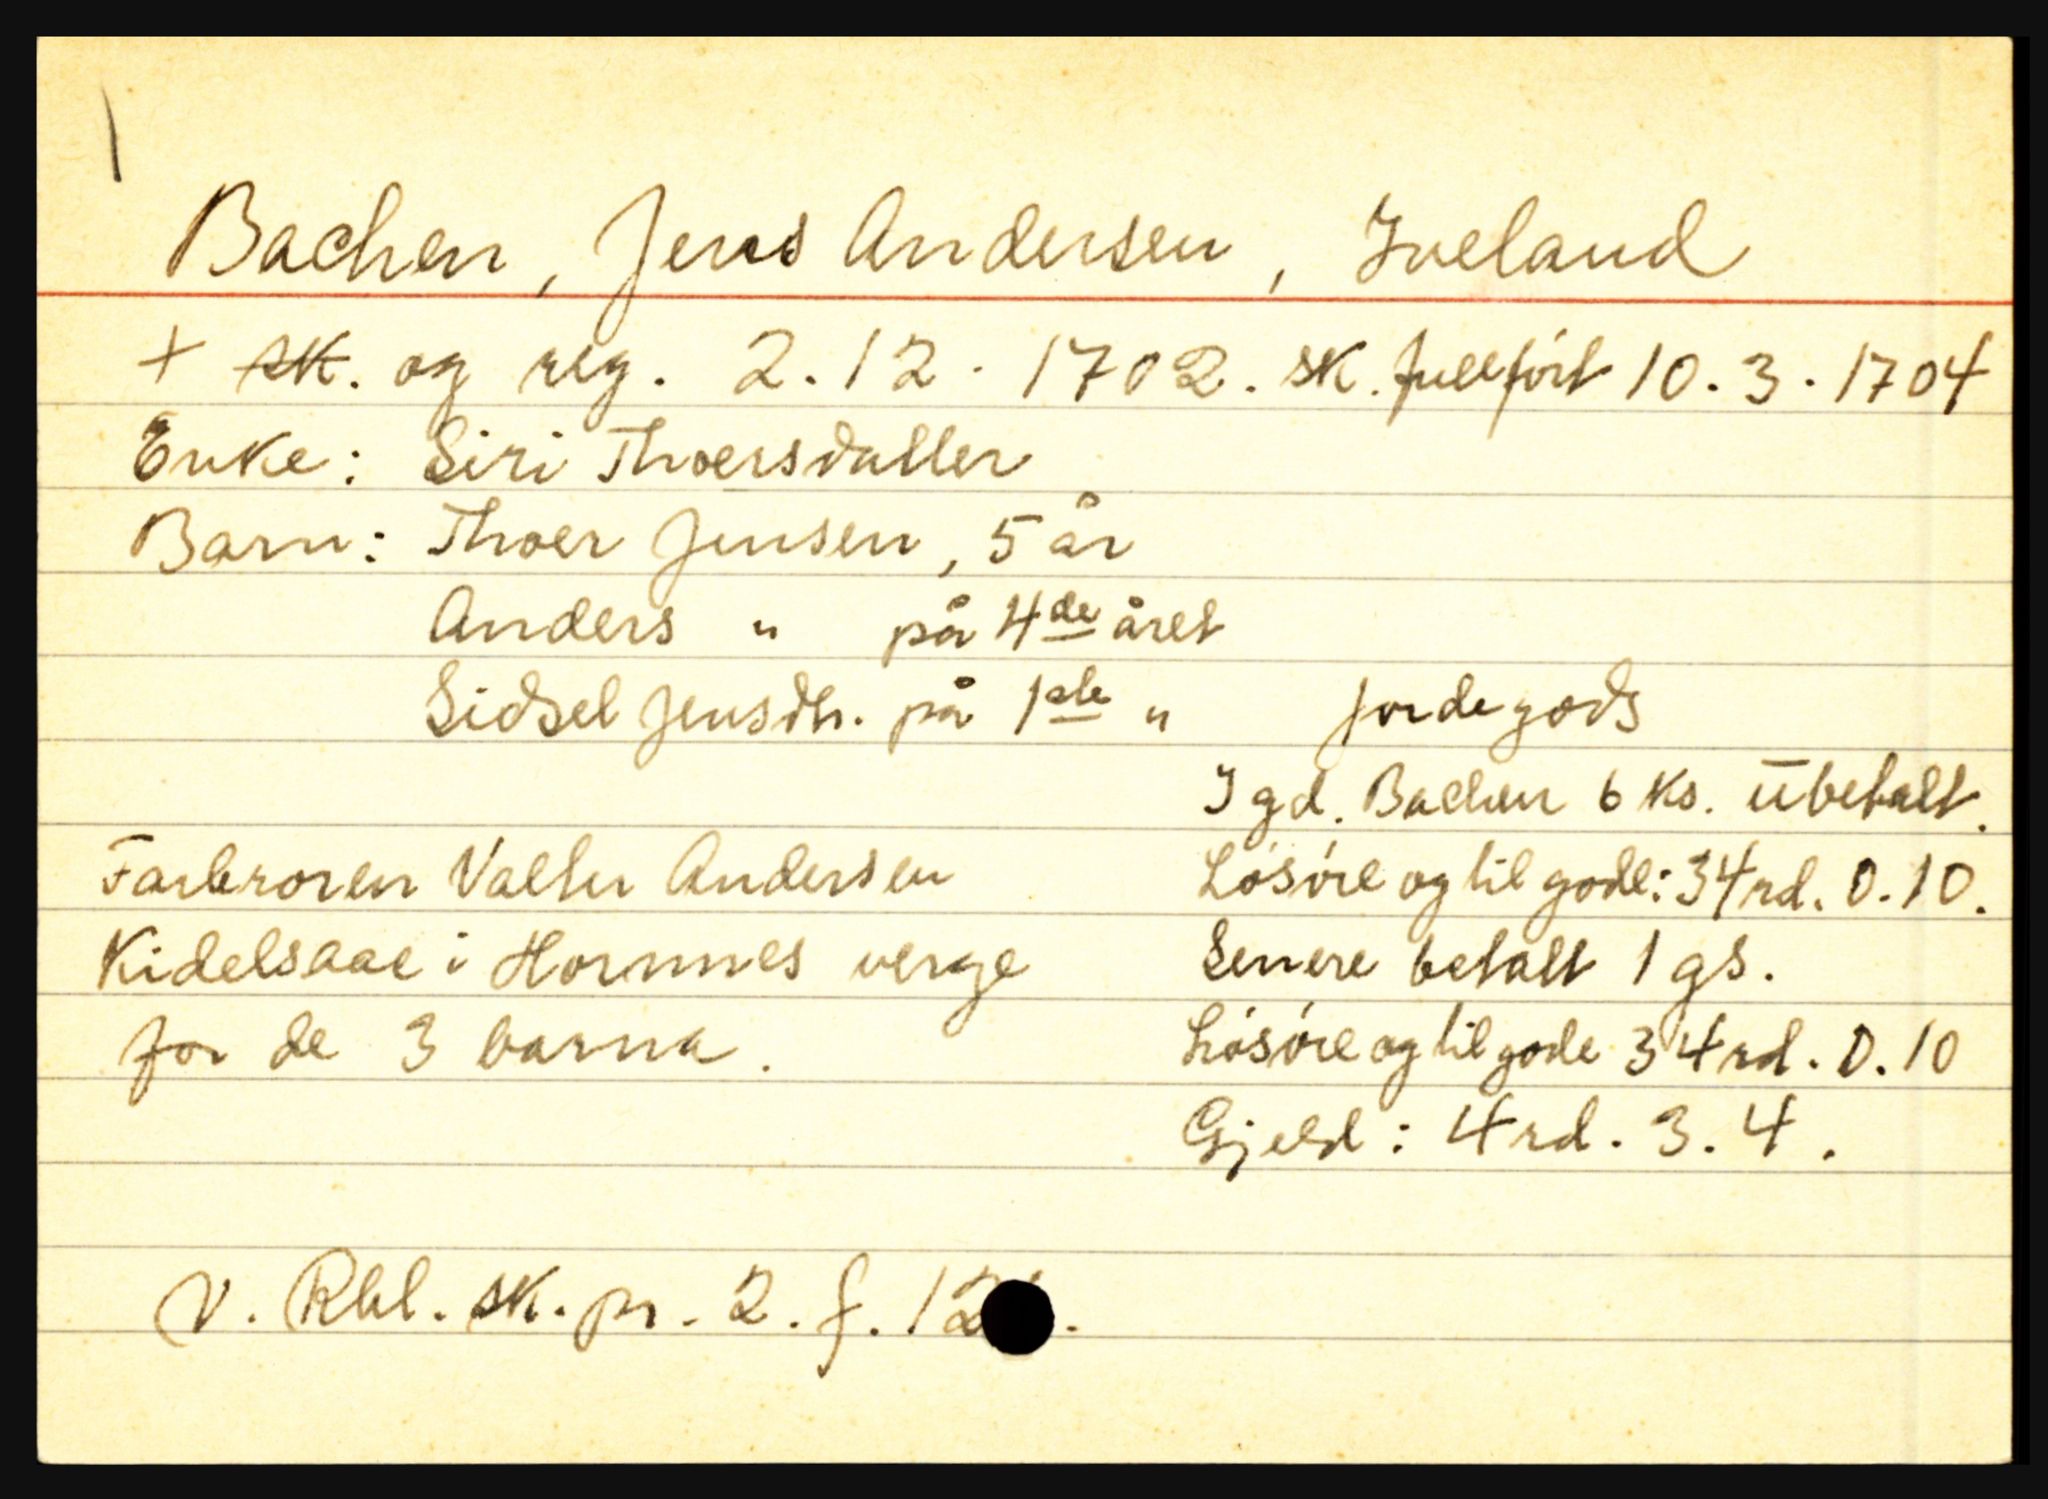 Bachen, Jens Andersen, Iveland
+ sk. og reg. 2.12.1702. sk. fullført 10.3.1704
Enke: Siri Thoersdatter
Barn: Thoer Jensen, 5 år
Anders " på 4de året
Sidsel Jensdtr. på 1ste "
Jordegods
I gd. Bachen 6 ks. Ubetalt.
Løsøre og til gode: 34 rd. 0.10.
Senere betalt 1 gs.
Løsøre og til gode 34 rd. 0.10
Gjeld: 4 rd. 3. 4.
Farbroren Valter Andersen
Kidelsaae i Hornnes verge
for de 3 barna.
V. Rbl. sk. pr. 2. f. 12